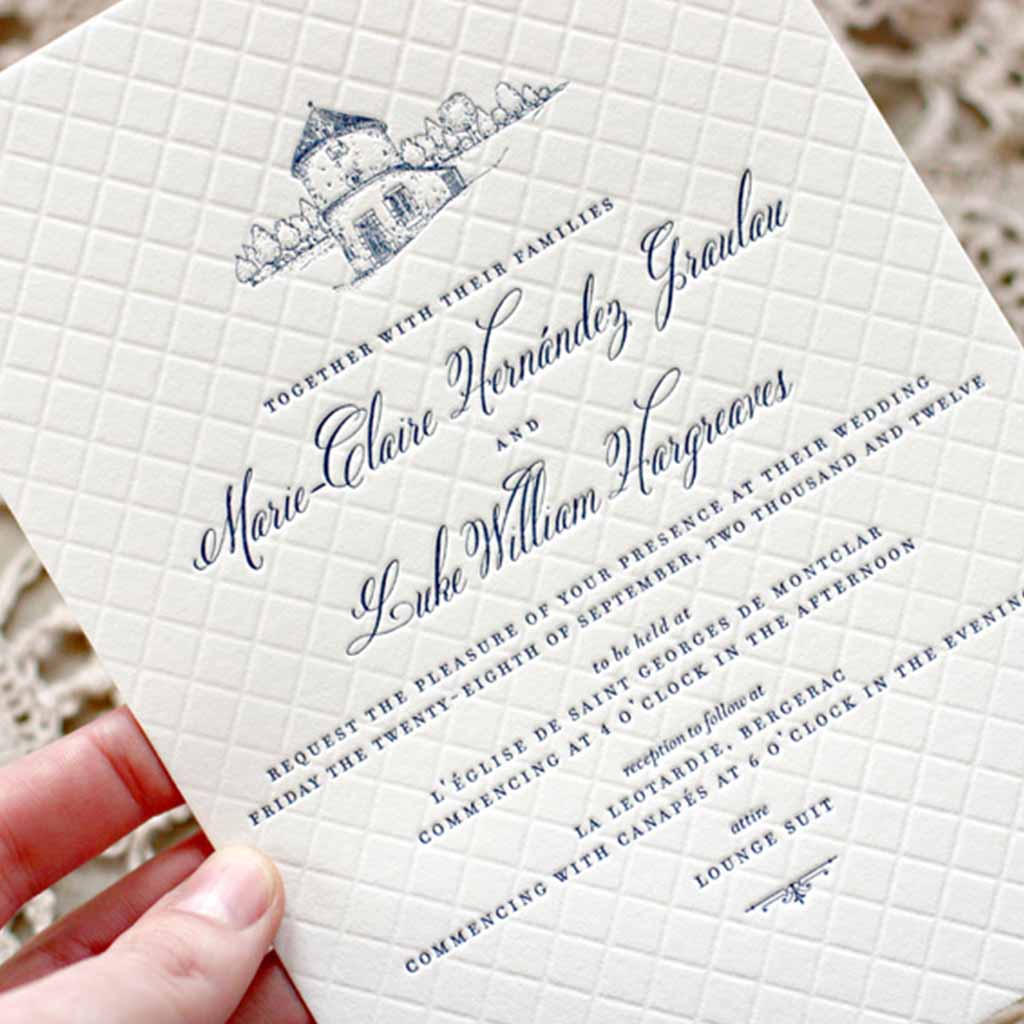 TOGETHER WITH THEIR FAMILIES
Marie-Claire Hernández Graulau
AND
Luke William Hargreaves
REQUEST THE PLEASURE OF YOUR PRESENCE AT THEIR WEDDING
FRIDAY THE TWENTY-EIGHTH OF SEPTEMBER, TWO THOUSAND AND TWELVE
to be held at
L'ÉGLISE DE SAINT GEORGES DE MONTCLAR
COMMENCING AT 4 O'CLOCK IN THE AFTERNOON
reception to follow at
LA LEOTARDIE, BERGERAC
COMMENCING WITH CANAPÉS AT 6 O'CLOCK IN THE EVENING
attire
LOUNGE SUIT